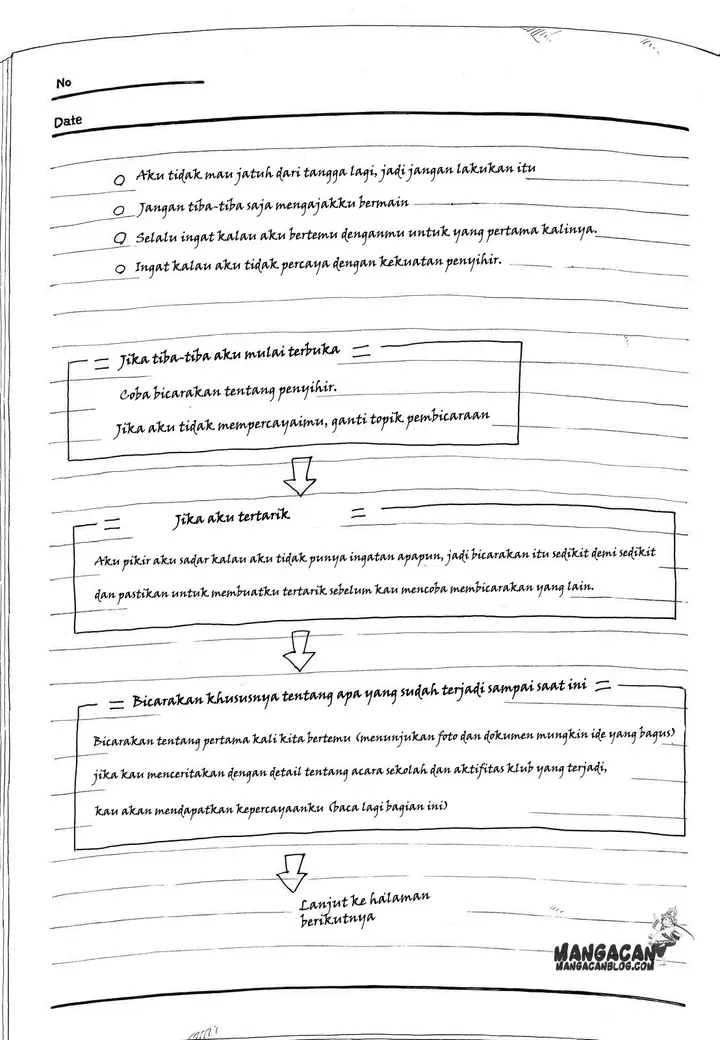 No
Date
Aku tidak mau jatuh dari tangga lagi, jadi jangan lakukan itu
Jangan tiba-tiba saja mengajakku bermain
Selalu ingat kalau aku bertemu denganmu untuk yang pertama kalinya.
Ingat kalau aku tidak percaya dengan kekuatan penyihir.
Jika tiba-tiba aku mulai terbuka
Coba bicarakan tentang penyihir.
Jika aku tidak mempercayaimu, ganti topik pembicaraan
Jika aku tertarik
Aku pikir aku sadar kalau aku tidak punya ingatan apapun, jadi bicarakan itu sedikit demi sedikit
dan pastikan untuk membuatku tertarik sebelum kau mencoba membicarakan yang lain.
Bicarakan khususnya tentang apa yang sudah terjadi sampai saat ini
Bicarakan tentang pertama kali kita bertemu (menunjukan foto dan dokumen mungkin ide yang bagus)
jika kau menceritakan dengan detail tentang acara sekolah dan aktifitas klub yang terjadi,
kau akan mendapatkan kepercayaanku (baca lagi bagian ini)
Lanjut ke halaman
berikutnya
MANGACAN
MANGACANBLOG.COM